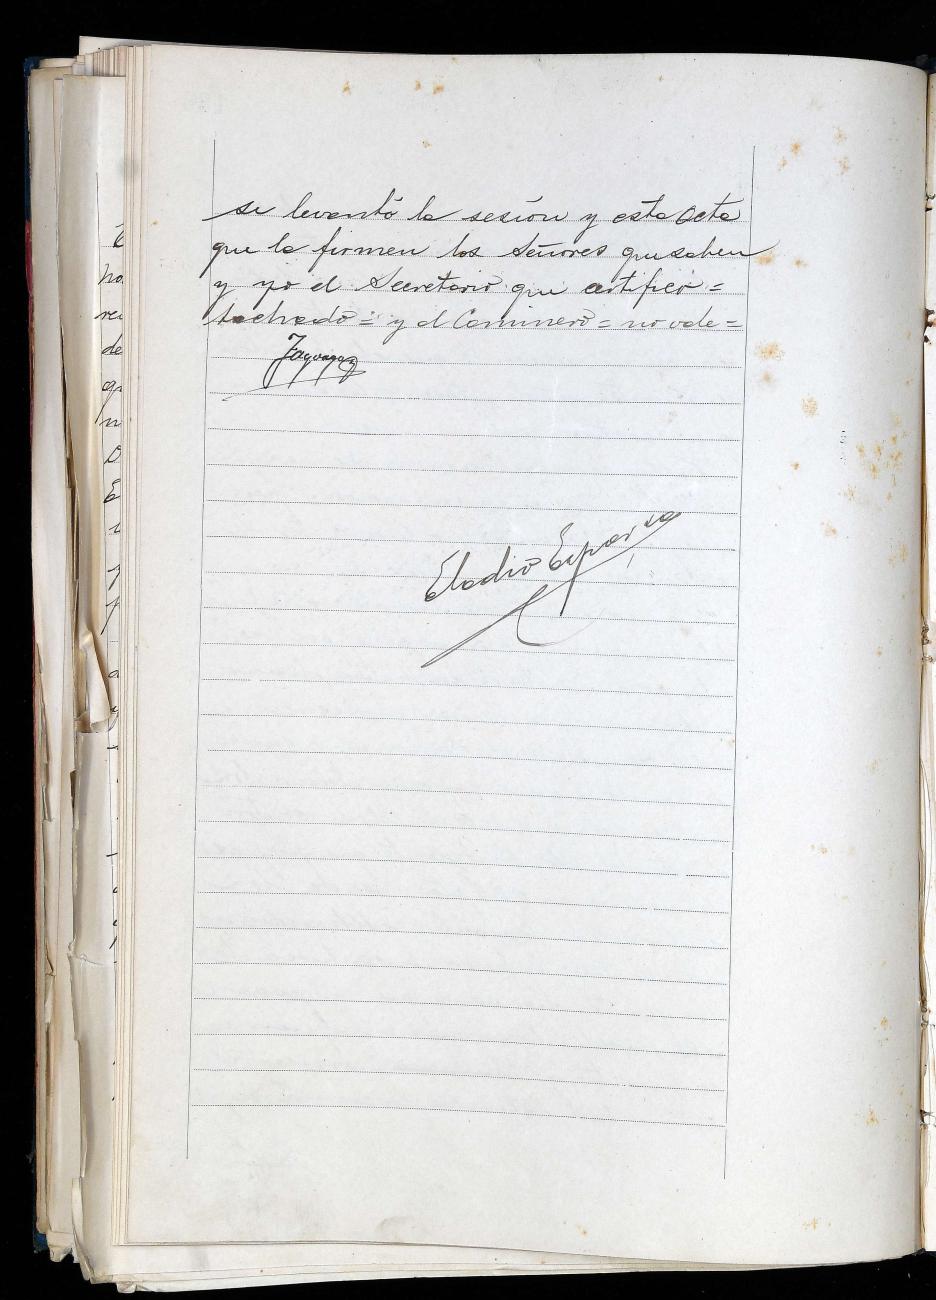 se levantó la sesión y esta Acta
que la firmen los Señores que saben
y yo el Secretario que certifico =
tachado = y el Caminero = no vale =
Eladio Esparza